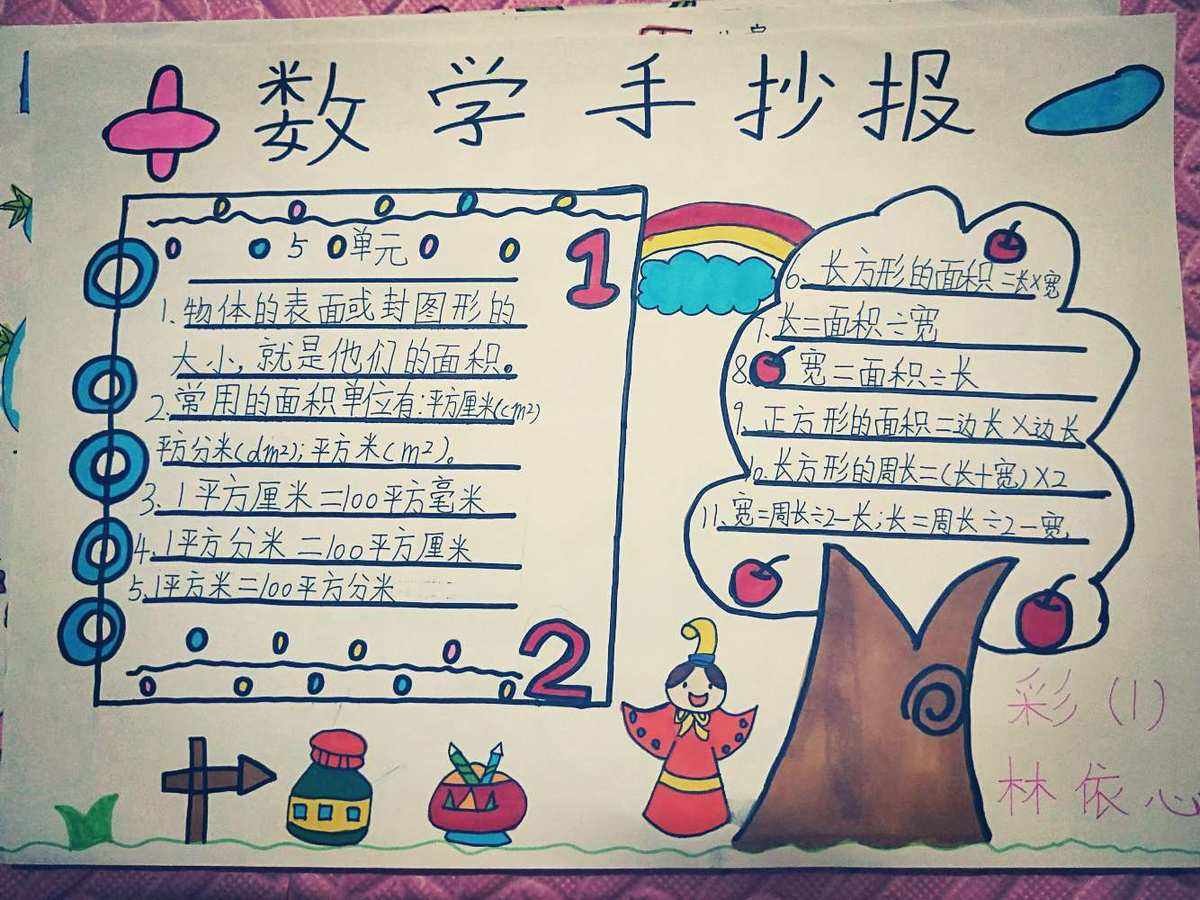 数学手抄报
5 单元
1
1.物体的表面或封图形的
大小,就是他们的面积。
2.常用的面积单位有:平方厘米(cm²)
平方分米(dm²);平方米(m²)。
3.1平方厘米=100平方毫米
4.1平方分米=100平方厘米
5.1平方米=100平方分米
2
6.长方形的面积=长×宽
7.长=面积÷宽
8.宽=面积÷长
9.正方形的面积=边长×边长
10.长方形的周长=(长+宽)×2
11.宽=周长÷2-长;长=周长÷2-宽
彩(1)
林依心